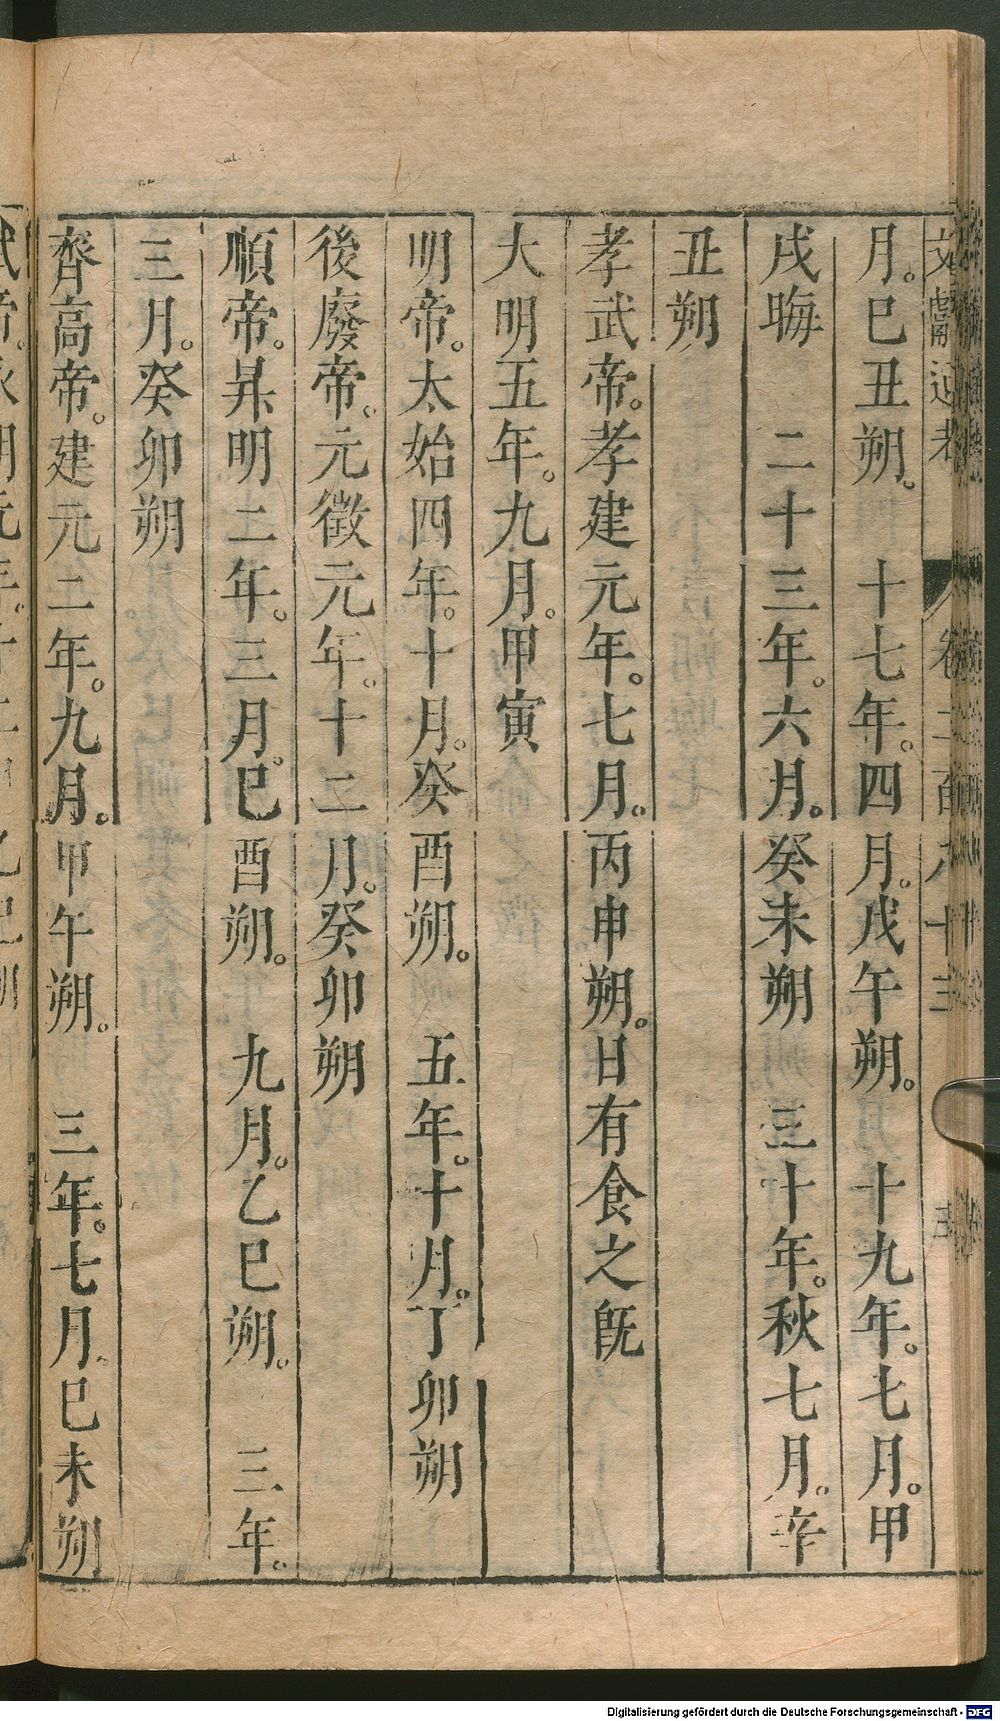 文獻通考 卷二百八十三
月。巳丑朔。 十七年。四月。戊午朔。 十九年。七月。甲
戌晦 二十三年。六月。癸未朔 三十年。秋七月。辛
丑朔
孝武帝。孝建元年。七月。丙申朔。日有食之既
大明五年。九月。甲寅
明帝。太始四年。十月。癸酉朔。 五年。十月。丁卯朔
後廢帝。元徽元年。十二月。癸卯朔
順帝。昇明二年。三月。巳酉朔。 九月。乙巳朔。 三年。
三月。癸卯朔
齊高帝。建元二年。九月。甲午朔。 三年。七月。巳未朔
Digitalisierung gefördert durch die Deutsche Forschungsgemeinschaft - DFG